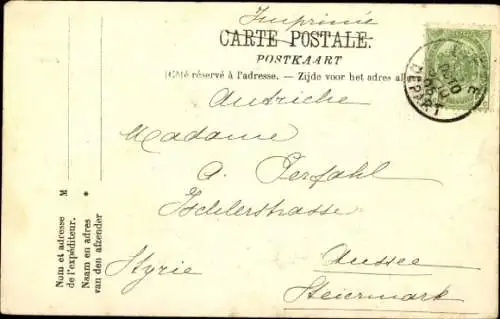 Imprimé
CARTE POSTALE.
POSTKAART
(Côté réservé à l'adresse. — Zijde voor het adres
Autriche
Madame
A. Perfahl
Ischlerstrasse
Aussee
Styrie
Steiermark
M
Nom et adresse
de l'expéditeur.
*
Naam en adres
van den afzender
DEPART